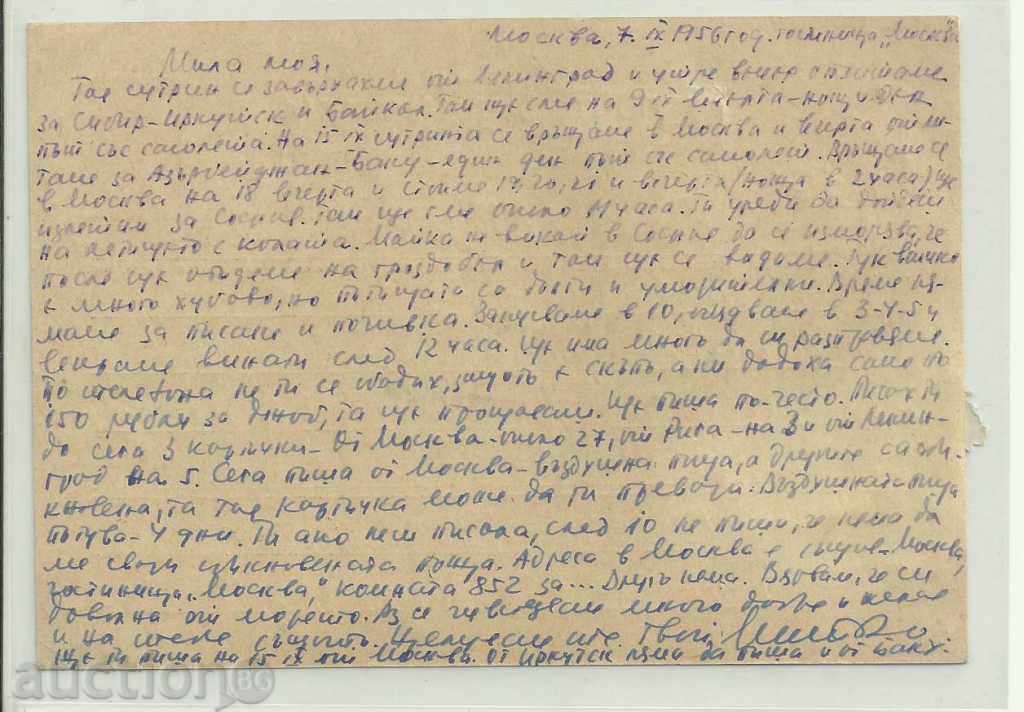 Москва, 7. IX 1956 год. гостинница „Москва"
Мила моя,
Тая сутрин се завърнахме от Ленинград и утре вечер отлитаме
за Сибир-Иркутск и Байкал. Там ще сме на 9 IX вечерта-нощ и ден
път със самолета. На 15 IX сутринта се връщаме в Москва и вечерта
таме за Азърбейджан-Баку-един ден път със самолет. Връщаме се
в Москва на 18 вечерта и стоиме 19, 20, и вечерта (нощта в 2 часа) ще
излетим за София. Там ще сме около 11 часа. Ти гледай да дойдеш
на летището с колата. Майка не викай в София да се изморява, че
после ще отидеме на гроздобер и там ще се видиме. Тук всичко
е много хубаво, но пътищата са дълги и уморителни. Време ня-
маме за писане и почивка. Закусваме в 10, обядваме в 3-4-5 и
вечеряме винаги след 12 часа. Ще има много да ти разправяме.
По телефона не ти се обадих, защото е скъпо, а ни дадоха само по
150 рубли за джоб, та ще прощаваш. Ще пиша по-често. Писах ти
до сега 3 картички-От Москва-около 27, от Рига-на 3 и от Ленин-
град на 5. Сега пиша от Москва-въздушна поща, а другите са оби-
кновена, та тая картичка може да ги превари. Въздушната поща
пътува-4 дни. Ти ако не си писала, след 10 не пиши, че няма да
ме свари обикновената поща. Адреса в Москва е същия-Москва,
гостинница „Москва", комната 852 за... Друго няма. Вярвам, че си
доволна от морето. Аз се чувствувам много добре и желая
и на тебе същото. Целувам те. Твой
Ще ти пиша на 15 IX от Москва. От Иркутск ще да пиша и от Баку.
auction BG